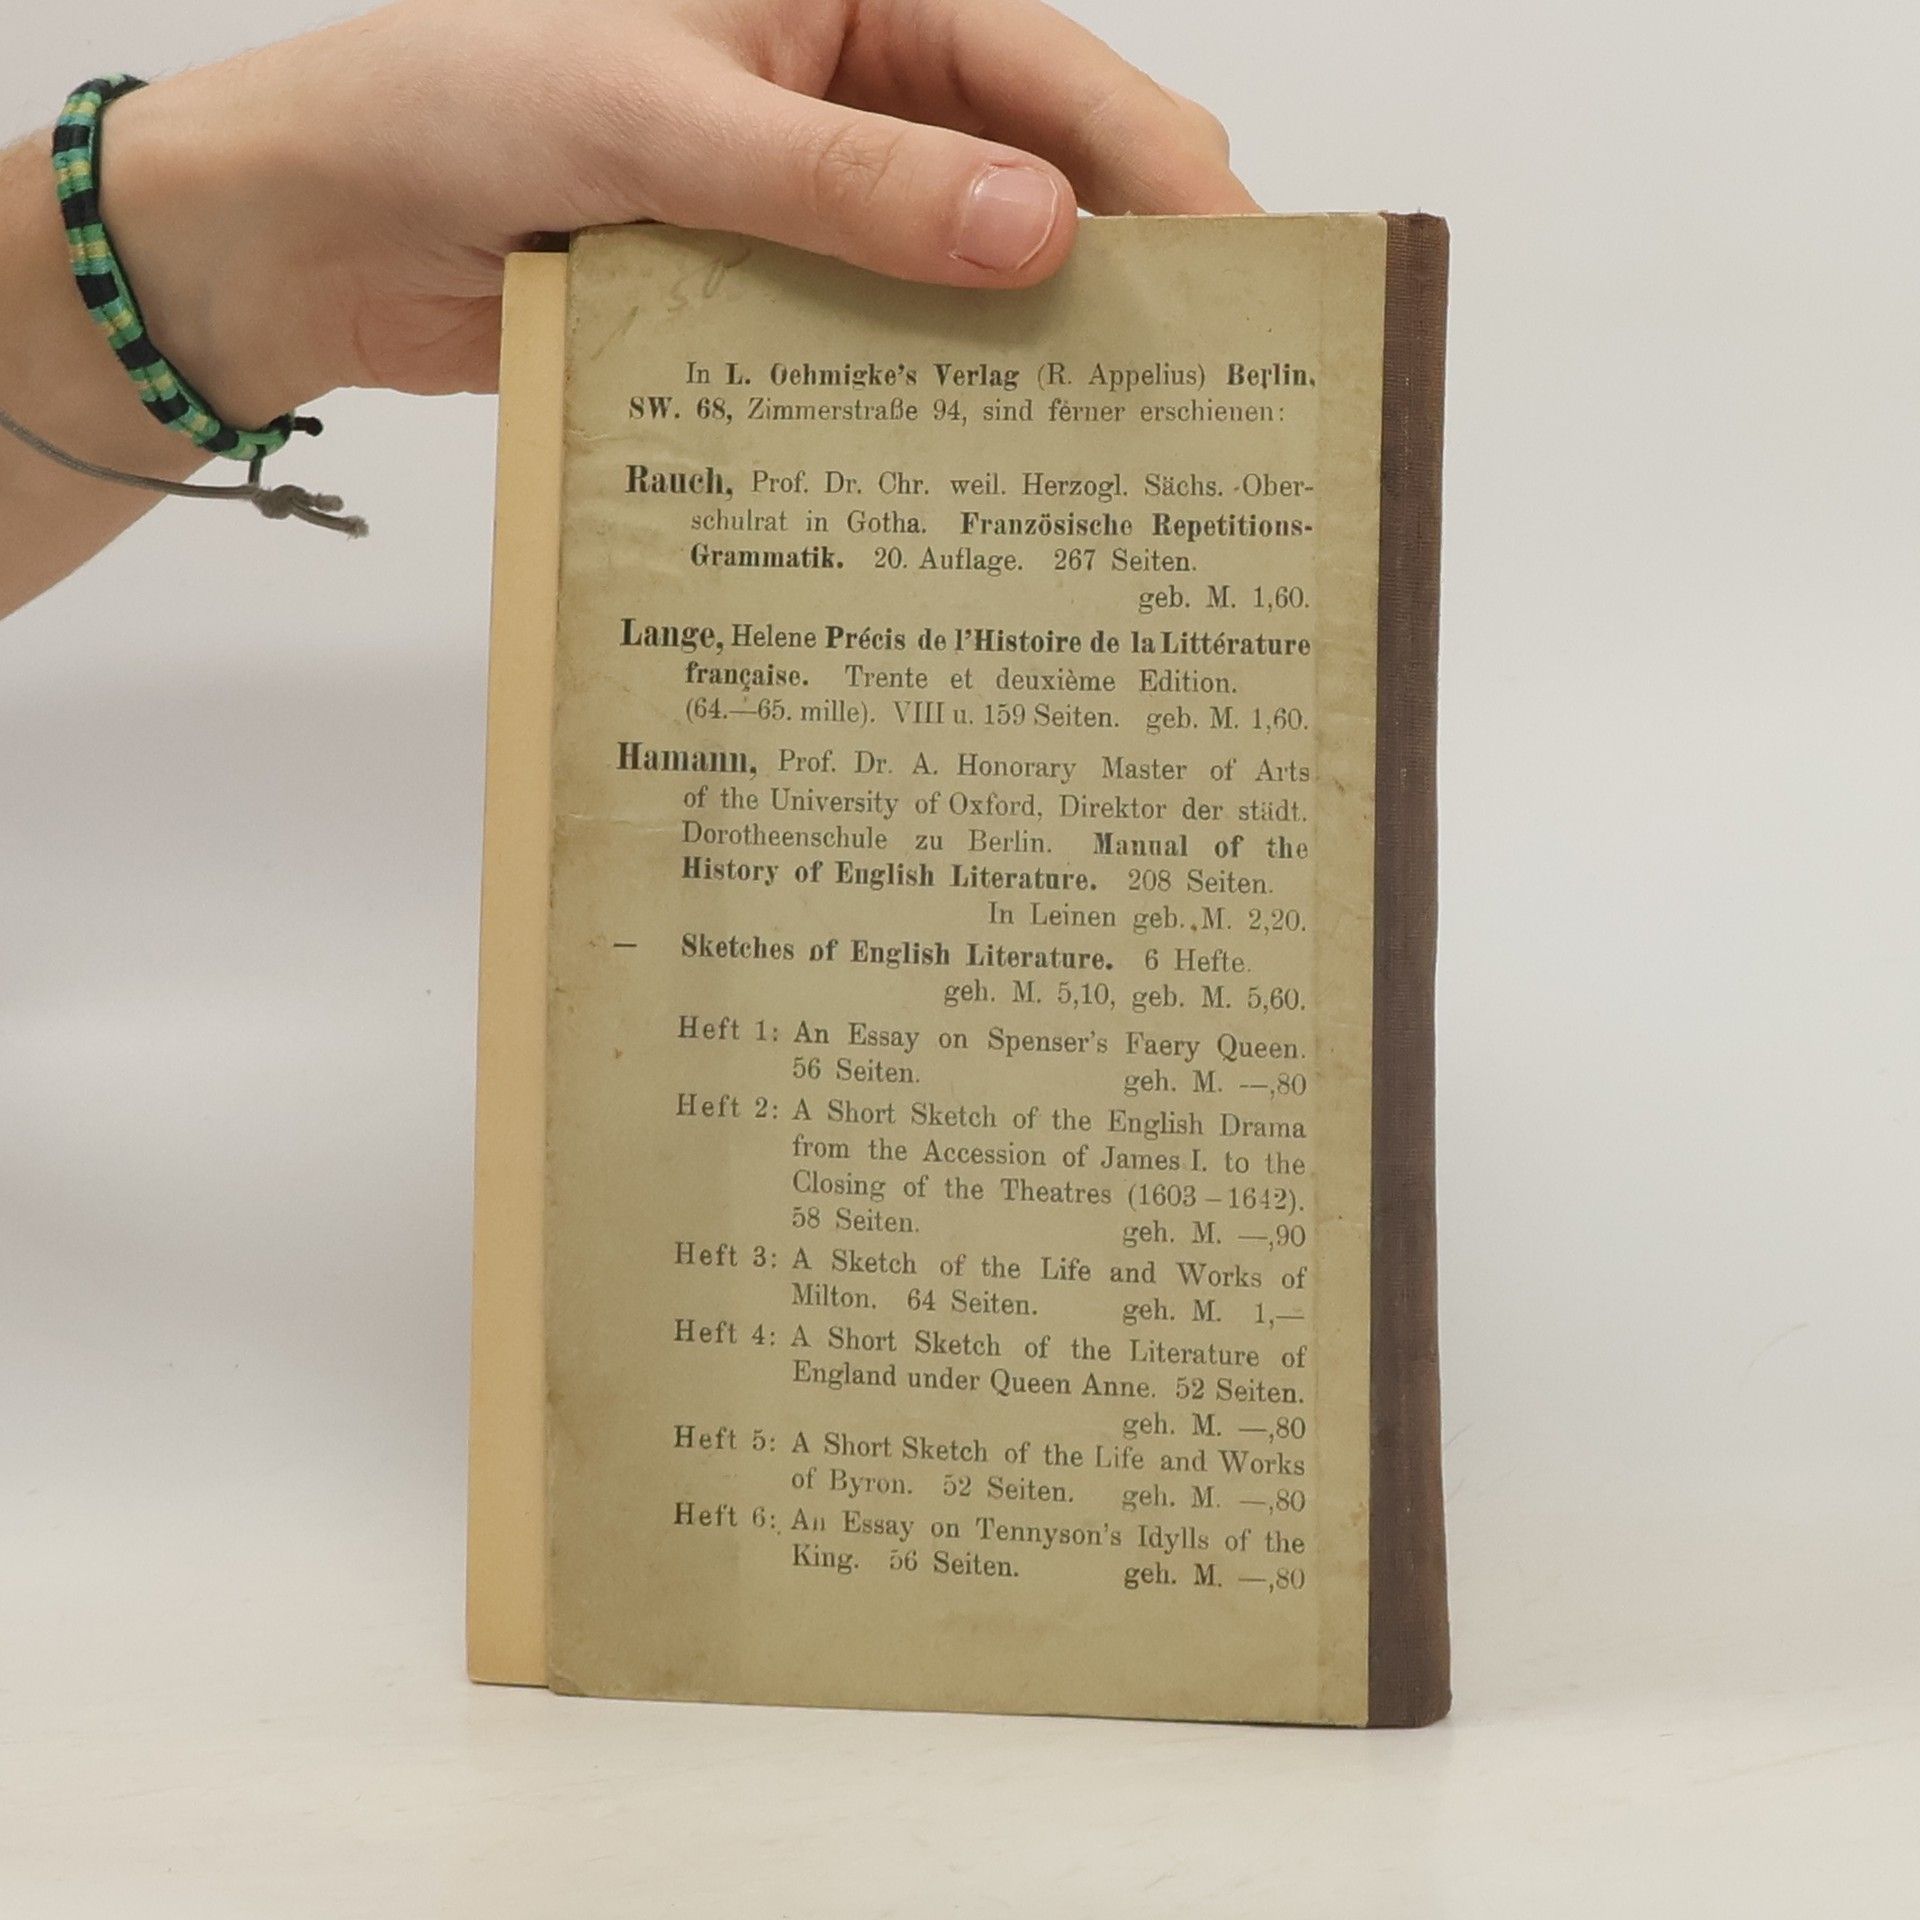 150
In L. Oehmigke's Verlag (R. Appelius) Berlin,
SW. 68, Zimmerstraße 94, sind ferner erschienen:
Rauch, Prof. Dr. Chr. weil. Herzogl. Sächs. Ober-
schulrat in Gotha. Französische Repetitions-
Grammatik. 20. Auflage. 267 Seiten.
geb. M. 1,60.
Lange, Helene Précis de l'Histoire de la Littérature
française. Trente et deuxième Edition.
(64.—65. mille). VIII u. 159 Seiten. geb. M. 1,60.
Hamann, Prof. Dr. A. Honorary Master of Arts
of the University of Oxford, Direktor der städt.
Dorotheenschule zu Berlin. Manual of the
History of English Literature. 208 Seiten.
In Leinen geb. M. 2,20.
— Sketches of English Literature. 6 Hefte.
geh. M. 5,10, geb. M. 5,60.
Heft 1: An Essay on Spenser's Faery Queen.
56 Seiten. geh. M. —,80
Heft 2: A Short Sketch of the English Drama
from the Accession of James I. to the
Closing of the Theatres (1603–1642).
58 Seiten. geh. M. —,90
Heft 3: A Sketch of the Life and Works of
Milton. 64 Seiten. geh. M. 1,—
Heft 4: A Short Sketch of the Literature of
England under Queen Anne. 52 Seiten.
geh. M. —,80
Heft 5: A Short Sketch of the Life and Works
of Byron. 52 Seiten. geh. M. —,80
Heft 6: An Essay on Tennyson's Idylls of the
King. 56 Seiten. geh. M. —,80